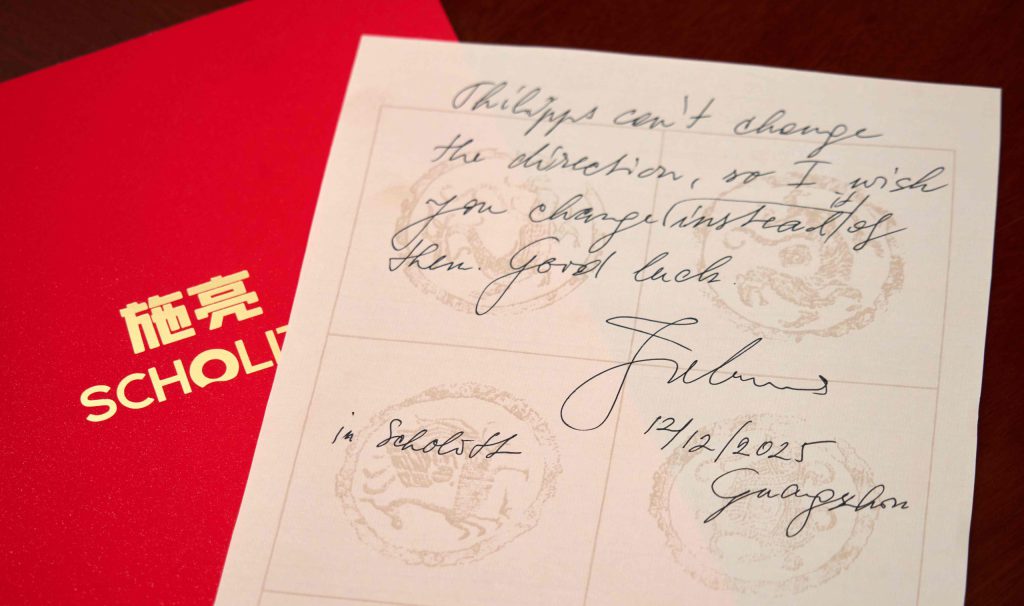 Philipps can't change
the direction, so I wish
you change it instead of
then. Good luck.
in Scholitt
12/12/2025
Guangzhou
施亮
SCHOLI